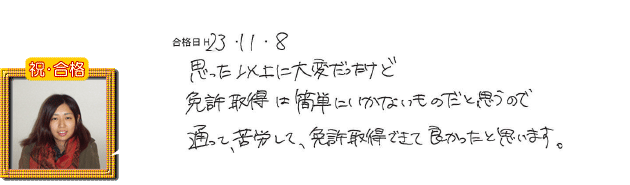 祝・合格
合格日 H23・11・8
思った以上に大変だったけど
免許取得は簡単にいかないものだと思うので
通って、苦労して、免許取得できて良かったと思います。